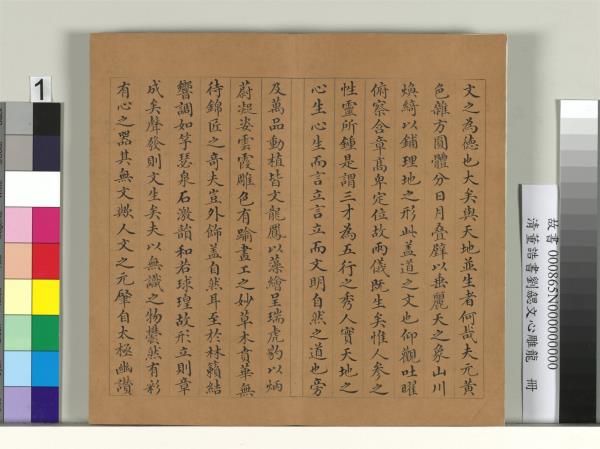 文之為德也大矣與天地並生者何哉夫元黃
色雜方圓體分日月疊璧以垂麗天之象山川
煥綺以鋪理地之形此蓋道之文也仰觀吐曜
俯察含章高卑定位故兩儀既生矣惟人參之
性靈所鍾是謂三才為五行之秀人實天地之
心生心生而言立言立而文明自然之道也旁
及萬品動植皆文龍鳳以藻繪呈瑞虎豹以炳
蔚凝姿雲霞雕色有踰畫工之妙草木賁華無
待錦匠之奇夫豈外飾蓋自然耳至於林籟結
響調如竽瑟泉石激韻和若球瑝故形立則章
成矣聲發則文生矣夫以無識之物鬱然有彩
有心之器其無文歟人文之元肇自太極幽讚
故書 000865N000000000
清董誥書劉勰文心雕龍 冊
1